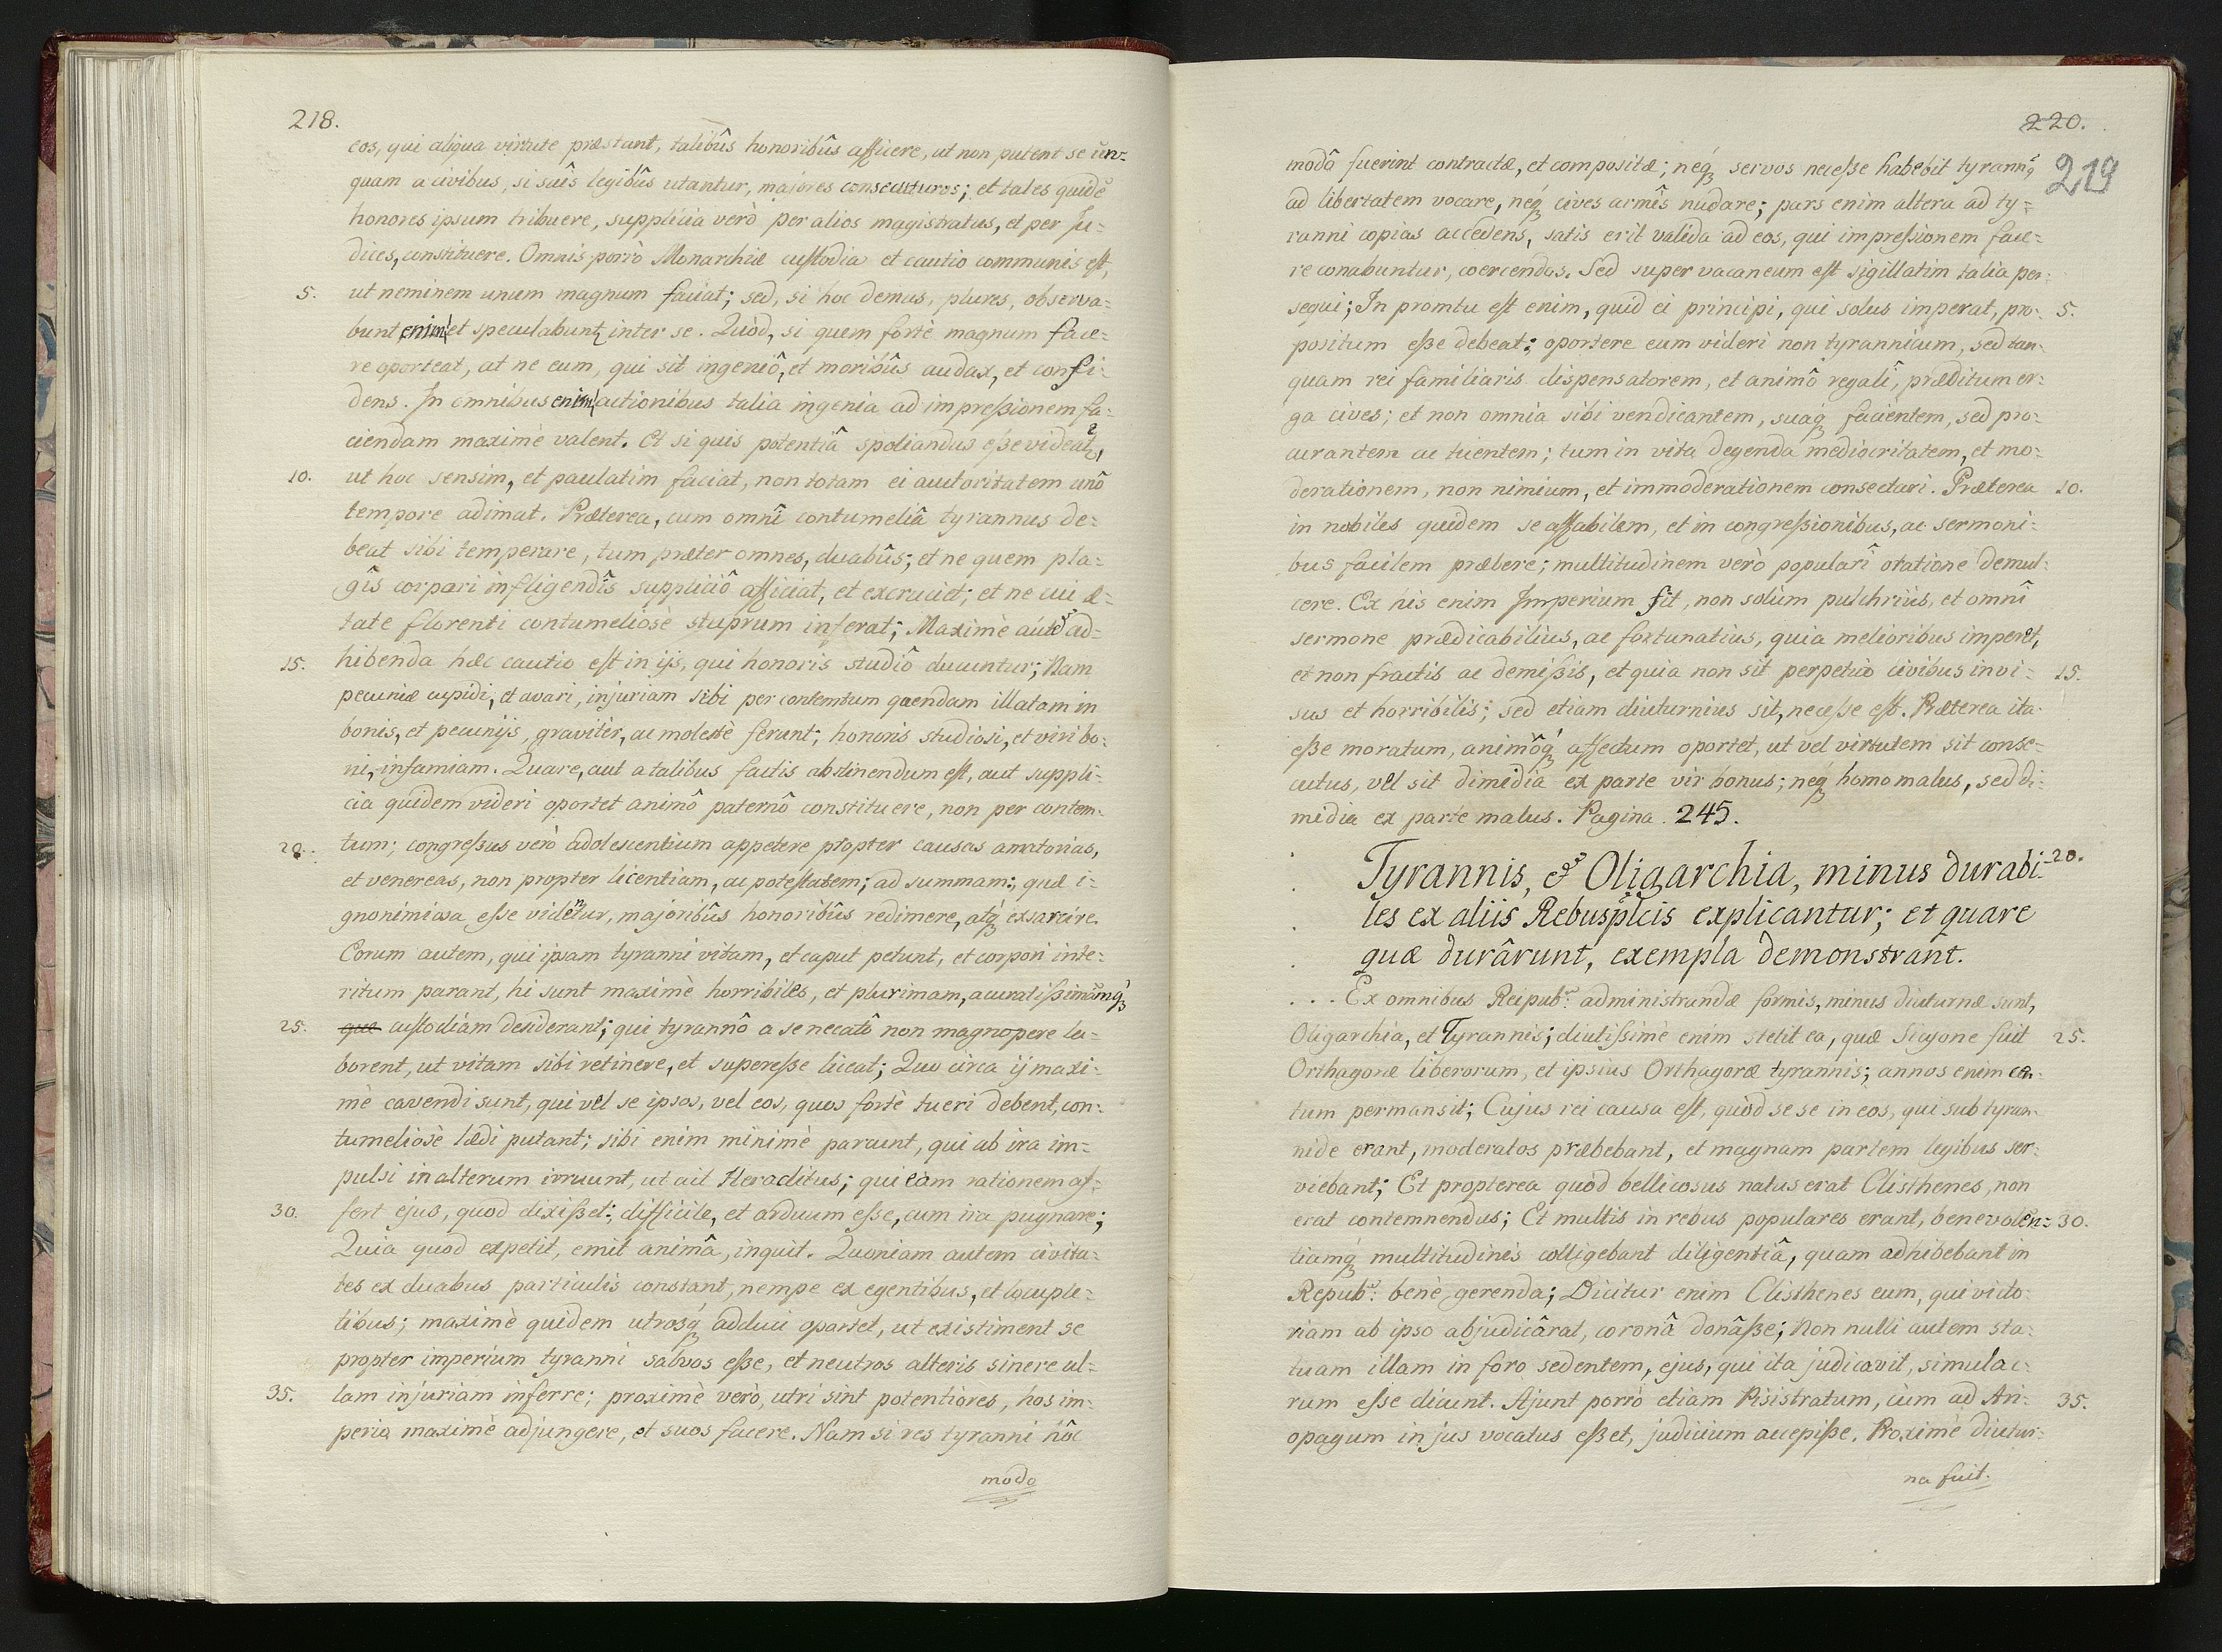 218.
eos, qui aliqua virtute præstant, talibûs honoribûs afficere, ut non putent se un-
quam a civibus, si suîs legibûs utantur, majores consecuturos; et tales quidē
honores ipsum tribuere, supplicia verò per alios magistratus, et per Ju-
dices, constituere. Omnis porrò Monarchiæ custodia et cautio communis est,
5. ut neminem unum magnum faciat; sed, si hoc demus, plures, observa-
bunt enim et speculabunt inter se. Quòd, si quem fortè magnum face-
re oporteat, at ne eum, qui sit ingeniô, et moribûs audax, et confi-
dens. In omnibus enim actionibus talia ingenia ad impressionem fa-
ciendam maximè valent. Et si quis potentiâ spoliandus esse videat,
10. ut hoc sensim, et paulatim faciat, non totam ei autoritatem unô
tempore adimat. Præterea, cum omnî contumeliâ tyrannus de-
beat sibi temperare, tum præter omnes, duabûs; et ne quem pla-
gîs corpori infligendîs suppliciô afficiat, et excruciet; et ne cui æ-
tate florenti contumeliosè stuprum inferat; Maximè autē ad-
15. hibenda hæc cautio est in ijs, qui honoris studiô ducuntur; Nam
pecuniæ cupidi, et avari, injuriam sibi per contemtum quendam illatam in
bonis, et pecunijs, gravitèr, ac molestè ferunt; honoris studiosi, et viri bo-
ni, infamiam. Quare, aut a talibus factis abstinendum est, aut suppli-
cia quidem videri oportet animô paternô constituere, non per contem-
20. tum; congressus verò adolescentium appetere propter causas amatorias,
et venereas, non propter licentiam, ac potestatem; ad summam; quæ i-
gnonimiosa esse videntur, majoribûs honoribûs redimere, atq́ exsarcire.
Eorum autem, qui ipsam tyranni vitam, et caput petunt, et corpori inte-
ritum parant, hi sunt maximè horribiles, et plurimam, acuratissimamq́
25. que custodiam desiderant; qui tyrannô a se necatô non magnopere la-
borent, ut vitam sibi retinere, et superesse liceat; Quo circa ij maxi-
mè cavendi sunt, qui vel se ipsos, vel eos, quos fortè tueri debent, con-
tumeliosè lædi putant; sibi enim minimè parcunt, qui ab ira im-
pulsi in alterum irruunt, ut ait Heraclitus; qui eam rationem af-
30. fert ejus, quod dixisset; difficile, et arduum esse, cum ira pugnare;
Quia quod expetit, emit animâ, inquit. Quoniam autem civita-
tes ex duabus particulis constant, nempe ex egentibus, et locuple-
tibus; maximè quidem utrosq́ adduci oportet, ut existiment se
propter imperium tyranni salvos esse, et neutros alteris sinere ul-
35. lam injuriam inferre; proximè verò, utri sint potentiores, hos im-
perio maximè adjungere, et suos facere. Nam si res tyranni hôc
modo
220.
219
modô fuerint contractæ, et compositæ; neq́ servos necesse habebit tyrannq
ad libertatem vocare, neq́ cives armîs nudare; pars enim altera ad ty-
ranni copias accedens, satis erit valida ad eos, qui impressionem face-
re conabuntur, coercendos. Sed super vacaneum est sigillatim talia per-
sequi; In promtu est enim, quid ei principi, qui solus imperat, pro- 5.
positum esse debeat; oportere eum videri non tyrannicum, sed tan-
quam rei familiaris dispensatorem, et animô regalî, præditum er-
ga cives; et non omnia sibi vendicantem, suaq́ facientem, sed pro-
curantem ac tuentem; tum in vita degenda mediocritatem, et mo-
derationem, non nimium, et immoderationem consectari. Præterea 10.
in nobiles quidem se affabilem, et in congressionibus, ac sermoni-
bus facilem præbere; multitudinem verò popularî oratione demul-
cere. Ex his enim Imperium fit, non solùm pulchriùs, et omnî
sermone prædicabilius, ac fortunatius, quia melioribus imperet,
et non fractis ac demissis, et quia non sit perpetuo civibus invi- 15.
sus et horribilis; sed etiam diuturnius sit, necesse est. Præterea ita
esse moratum, animôq́ affectum oportet, ut vel virtutem sit conse-
cutus, vel sit dimidia ex parte vir bonus; neq́ homo malus, sed di-
midia ex parte malus. Pagina 245.
Tyrannis, et Oligarchia, minus durabi- 20.
les ex aliis Rebuspłcis explicantur; et quare
quæ durârunt, exempla demonstrant.
. . . Ex omnibus Reipubᶜ: administrandæ formis, minus diuturnæ sunt,
Oligarchia, et Tyrannis; diutissimè enim stetit ea, quæ Sicyone fuit 25.
Orthagoræ liberorum, et ipsius Orthagoræ tyrannis; annos enim cen-
tum permansit; Cujus rei causa est, quòd se se in eos, qui sub tyran-
nide erant, moderatos præbebant, et magnam partem legibus ser-
viebant; Et propterea quòd bellicosus natus erat Clisthenes, non
erat contemnendus; Et multis in rebus populares erant, benevolen- 30.
tiamq́ multitudinis colligebant diligentiâ, quam adhibebant in
Repubᶜ: benè gerenda; Dicitur enim Clisthenes eum, qui victo-
riam ab ipso abjudicârat, coronâ donâsse; Non nulli autem sta-
tuam illam in foro sedentem, ejus, qui ita judicavit, simulac-
rum esse dicunt. Ajunt porrò etiam Pisistratum, cùm ad Ari- 35.
opagum in jus vocatus esset, judicium accepisse. Proximè diutur-
na fuit.